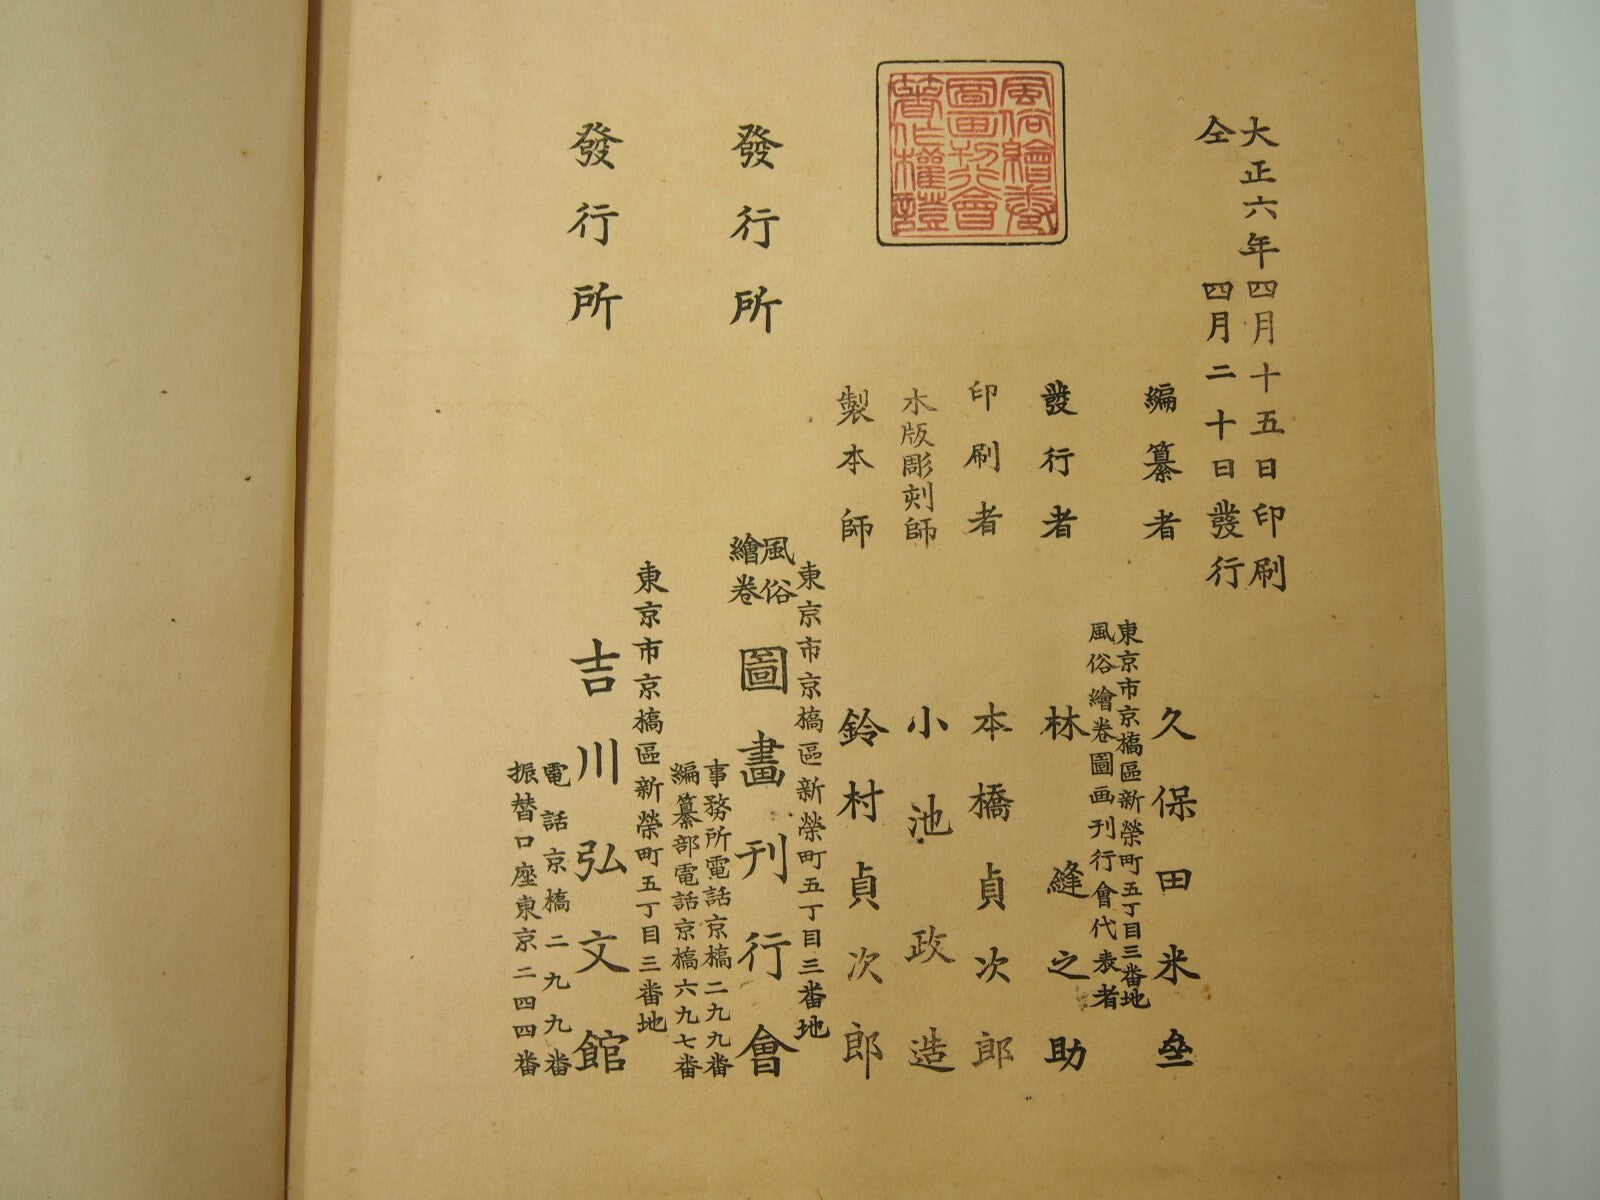 大正六年四月十五日印刷
仝四月二十日發行
風俗繪卷
圖畫刊行會
著作權證
編纂者 久保田米斎
東京市京橋區新榮町五丁目三番地
風俗繪卷圖画刊行會代表者
發行者 林縫之助
印刷者 本橋貞次郎
木版彫刻師 小池政造
製本師 鈴村貞次郎
東京市京橋區新榮町五丁目三番地
發行所 風俗繪卷圖畫刊行會
事務所電話京橋二九九番
編纂部電話京橋六九七番
東京市京橋區新榮町五丁目三番地
發行所 吉川弘文館
電話京橋二九九番
振替口座東京二四四番